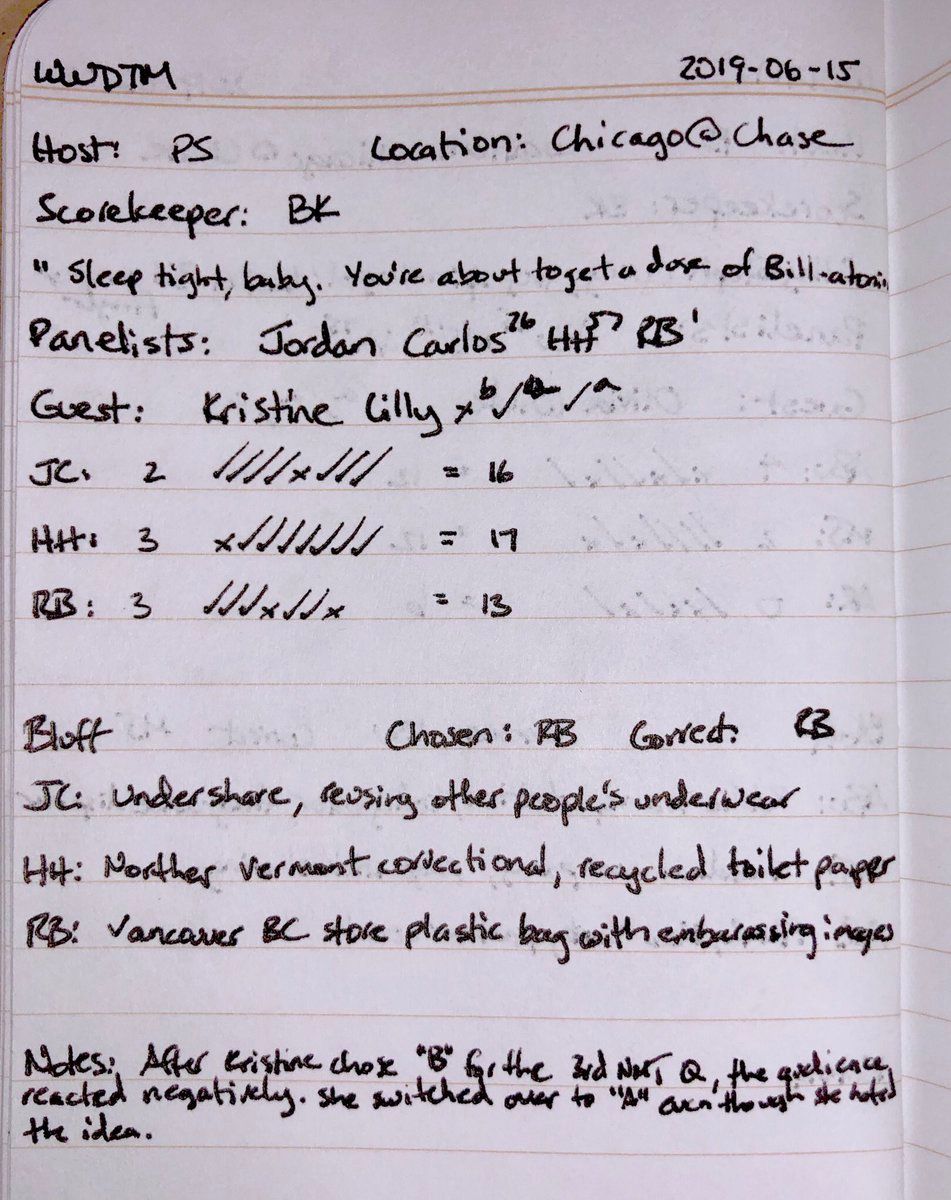 WWDTM 2019-06-15
Host: PS Location: Chicago@Chase
Scorekeeper: BK
" Sleep tight, baby. You're about to get a dose of Bill-atonin
Panelists: Jordan Carlos 26 HH 57 RB 1
Guest: Kristine Lilly x b ✓ ✓ a
JC: 2 ✓✓✓✓x✓✓✓ = 16
HH: 3 x✓✓✓✓✓✓✓ = 17
RB: 3 ✓✓✓x✓✓x = 13
Bluff Chosen: RB Correct: RB
JC: Undershare, reusing other people's underwear
HH: Norther Vermont correctional, recycled toilet papper
RB: Vancouver BC store plastic bag with embarassing images
Notes: After Kristine chose "B" for the 3rd Q, the audience
reacted negatively. She switched over to "A" even though she hated
the idea.